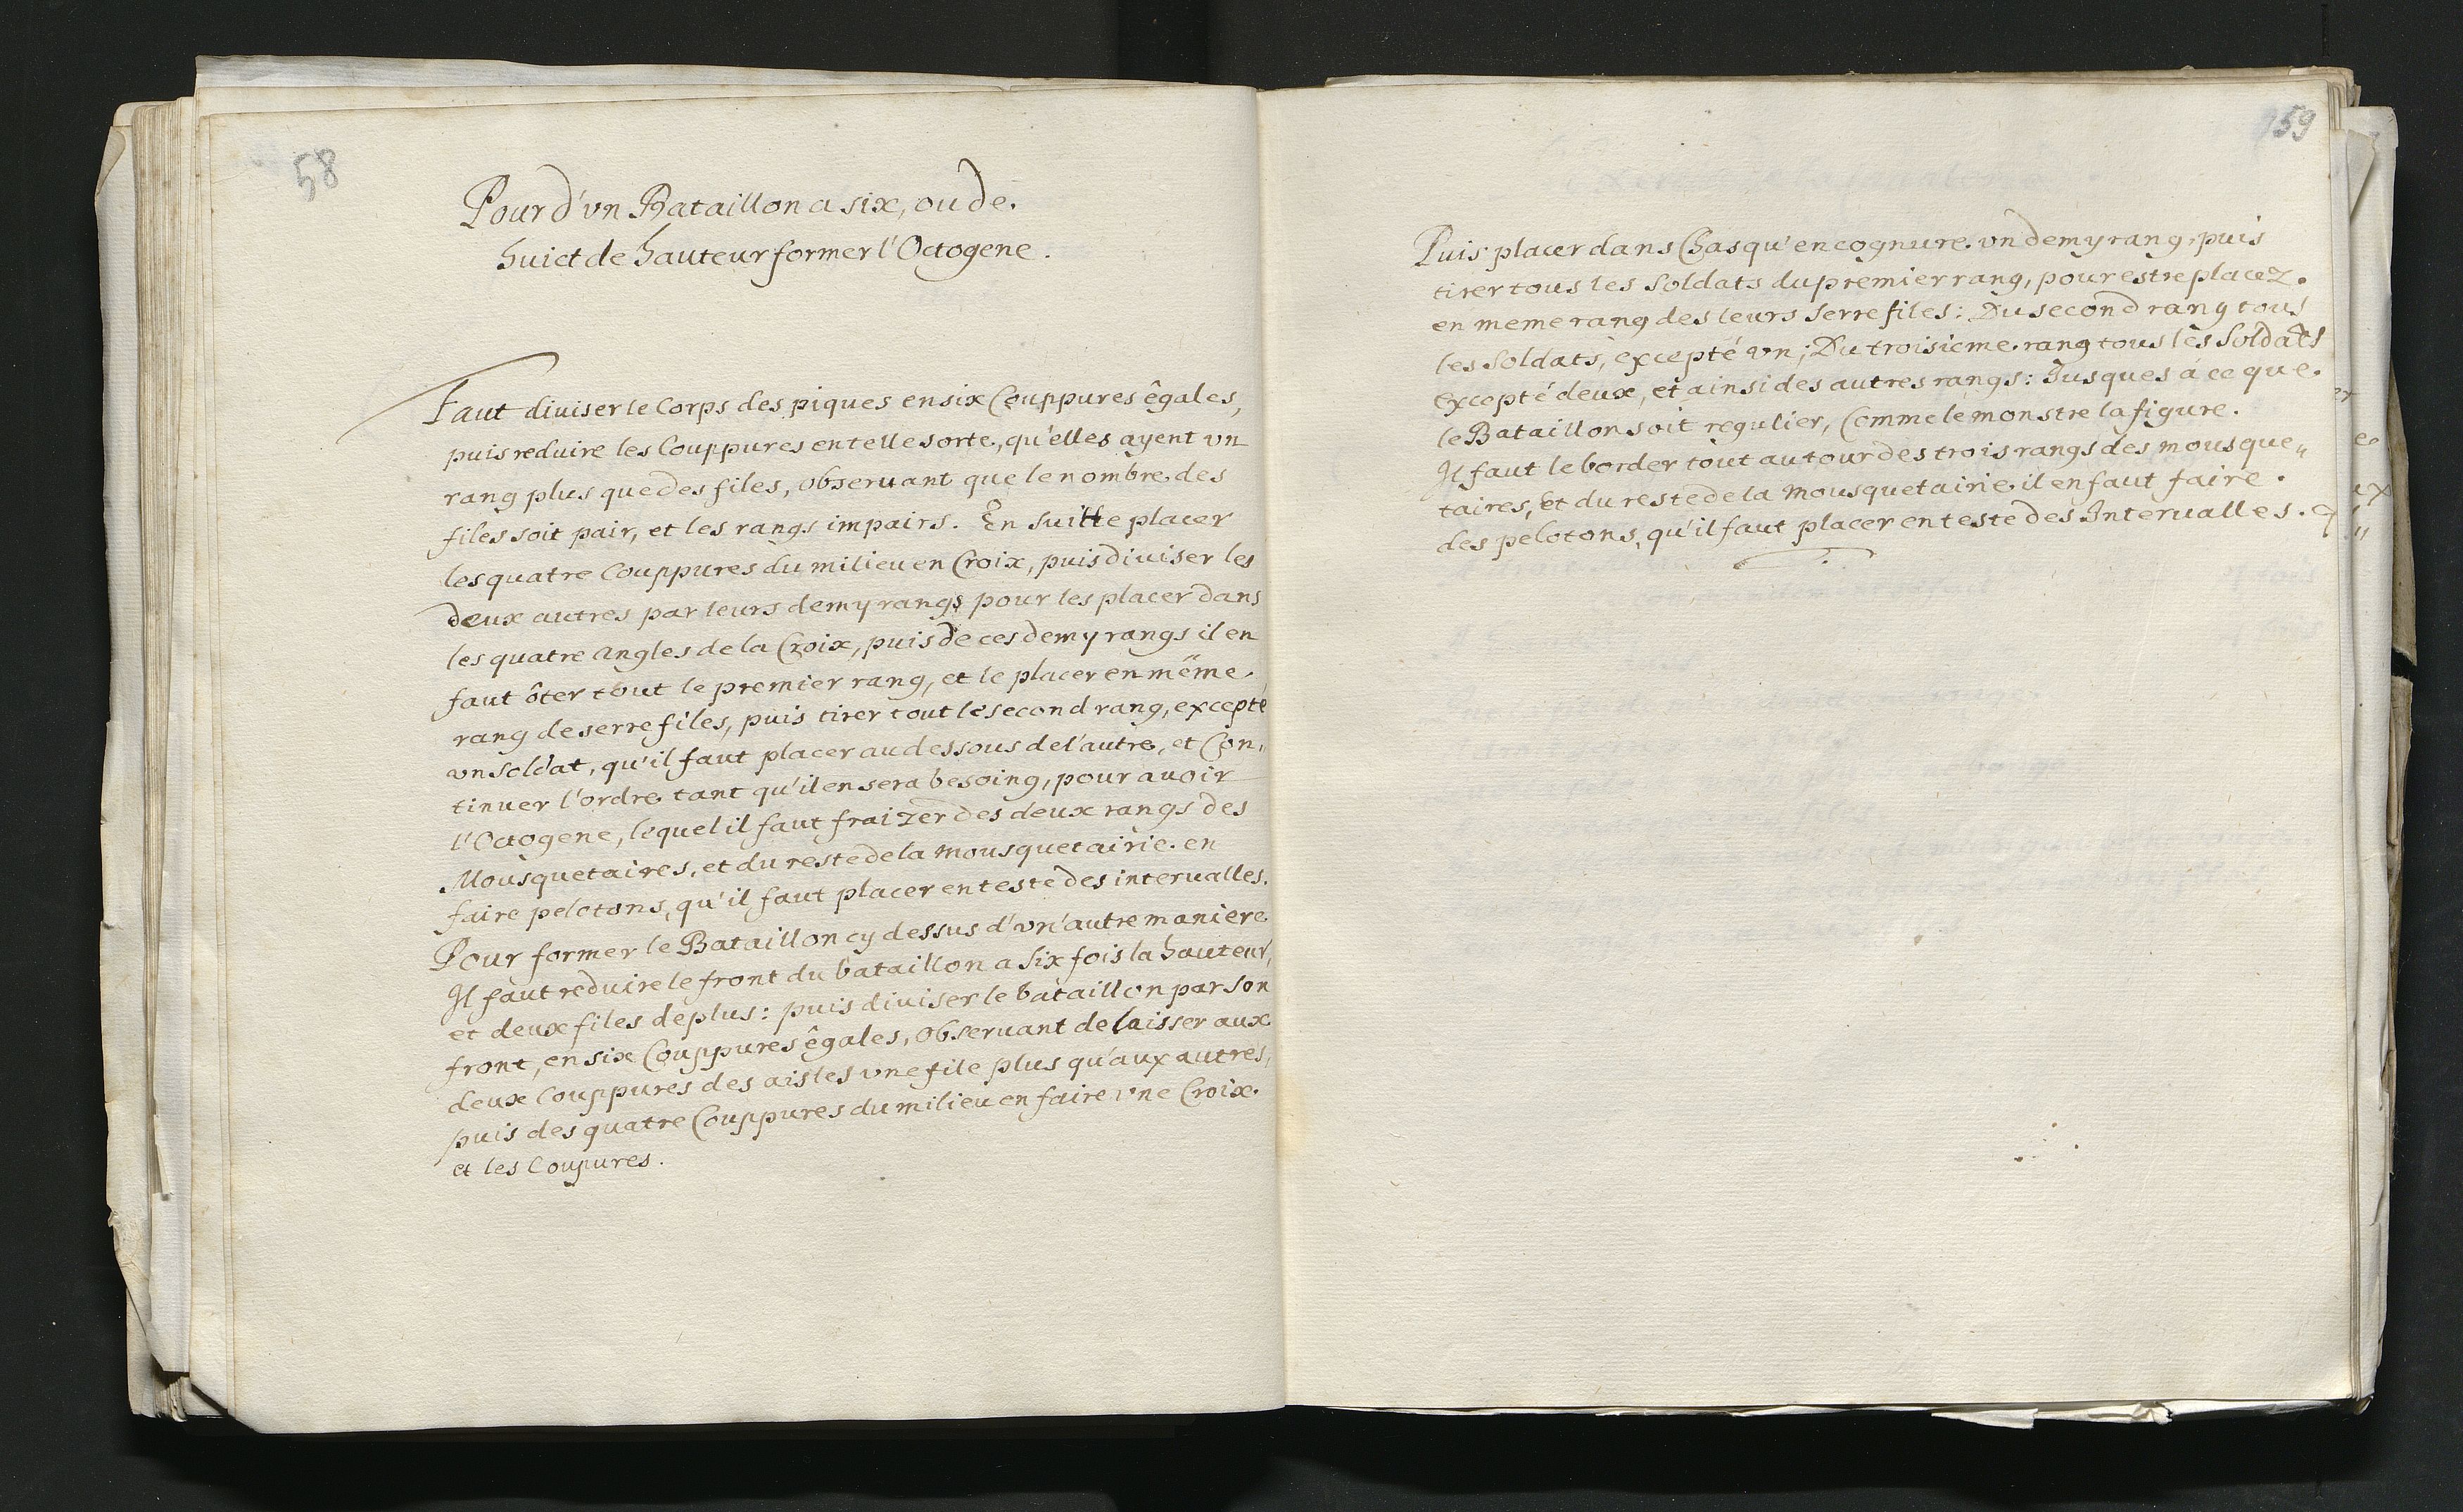 58
Pour d'vn Bataillon a six, ou de.
huict de hauteur former l'Octogene.
Faut diuiser le Corps des piques en six Couppures êgales,
puis reduire les Couppures en telle sorte, qu'elles ayent vn
rang plus que des files, observant que le nombre des
files soit pair, et les rangs impairs. En suitte placer
les quatre Couppures du milieu en Croix, puis diuiser les
deux autres par leurs demy rangs pour les placer dans
les quatre angles de la Croix, puis de ces demy rangs il en
faut ôter tout le premier rang, et le placer en mëme
rang de serre files, puis tirer tout le second rang, excepté
vn soldat, qu'il faut placer au dessous de l'autre, et Con„
tinuer l'ordre tant qu'il en sera besoing, pour auoir
l'Octogene, lequel il faut fraizer des deux rangs des
Mousquetaires, et du reste de la Mousquetairie. en
faire pelotons, qu'il faut placer en teste des interualles.
Pour former le Bataillon cy dessus d'vn' autre maniere
Il faut reduire le front du bataillon a six fois la hauteur,
et deux files de plus: puis diuiser le bataillon par son
front, en six Couppures êgales, Observant de laisser aux
deux Couppures des aisles vne file plus qu'aux autres,
puis des quatre Couppures du milieu en faire vne Croix.
et les Coupures.
159
Puis placer dans Chasqu' encognure. vn demy rang, puis
tirer tous les Soldats du premier rang, pour estre placez.
en meme rang des leurs Serre files: Du second rang tous
les Soldats, excepté vn; Du troisieme. rang tous les Soldats
excepté deux, et ainsi des autres rangs: Jusques á ce que.
le Bataillon soit regulier, Comme le monstre la figure.
Il faut le border tout autour des trois rangs des mousque„
taires, et du reste de la Mousquetairie il en faut faire.
des pelotons, qu'il faut placer en teste des Interualles.